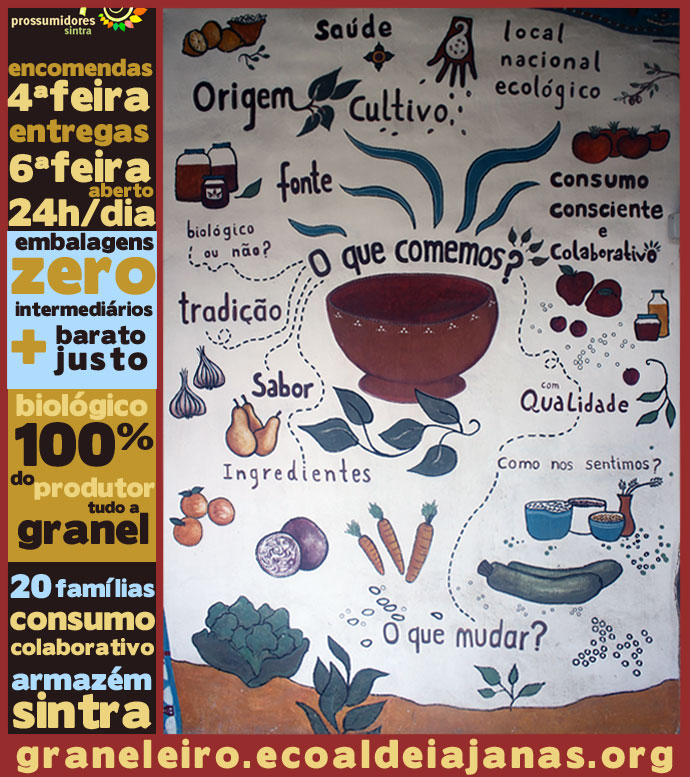 prossumidores
sintra
encomendas
4ªfeira
entregas
6ªfeira
aberto
24h/dia
embalagens
zero
intermediários
+ barato
justo
biológico
100%
do produtor
tudo a
granel
20 famílias
consumo
colaborativo
armazém
sintra
Saúde
local
nacional
ecológico
Origem
Cultivo
fonte
consumo
consciente
e
Colaborativo
biológico
ou não?
O que comemos?
tradição
Sabor
com
Qualidade
Ingredientes
Como nos sentimos?
O que mudar?
graneleiro.ecoaldeiajanas.org